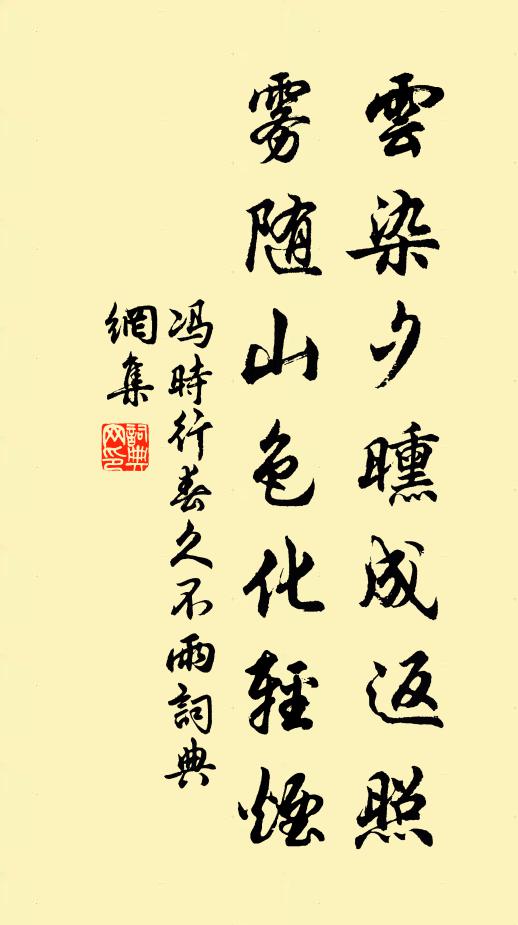 雲染夕曛成返照
雾随山色化輕煙
冯時行春久不雨詞典
網集
詞典網印